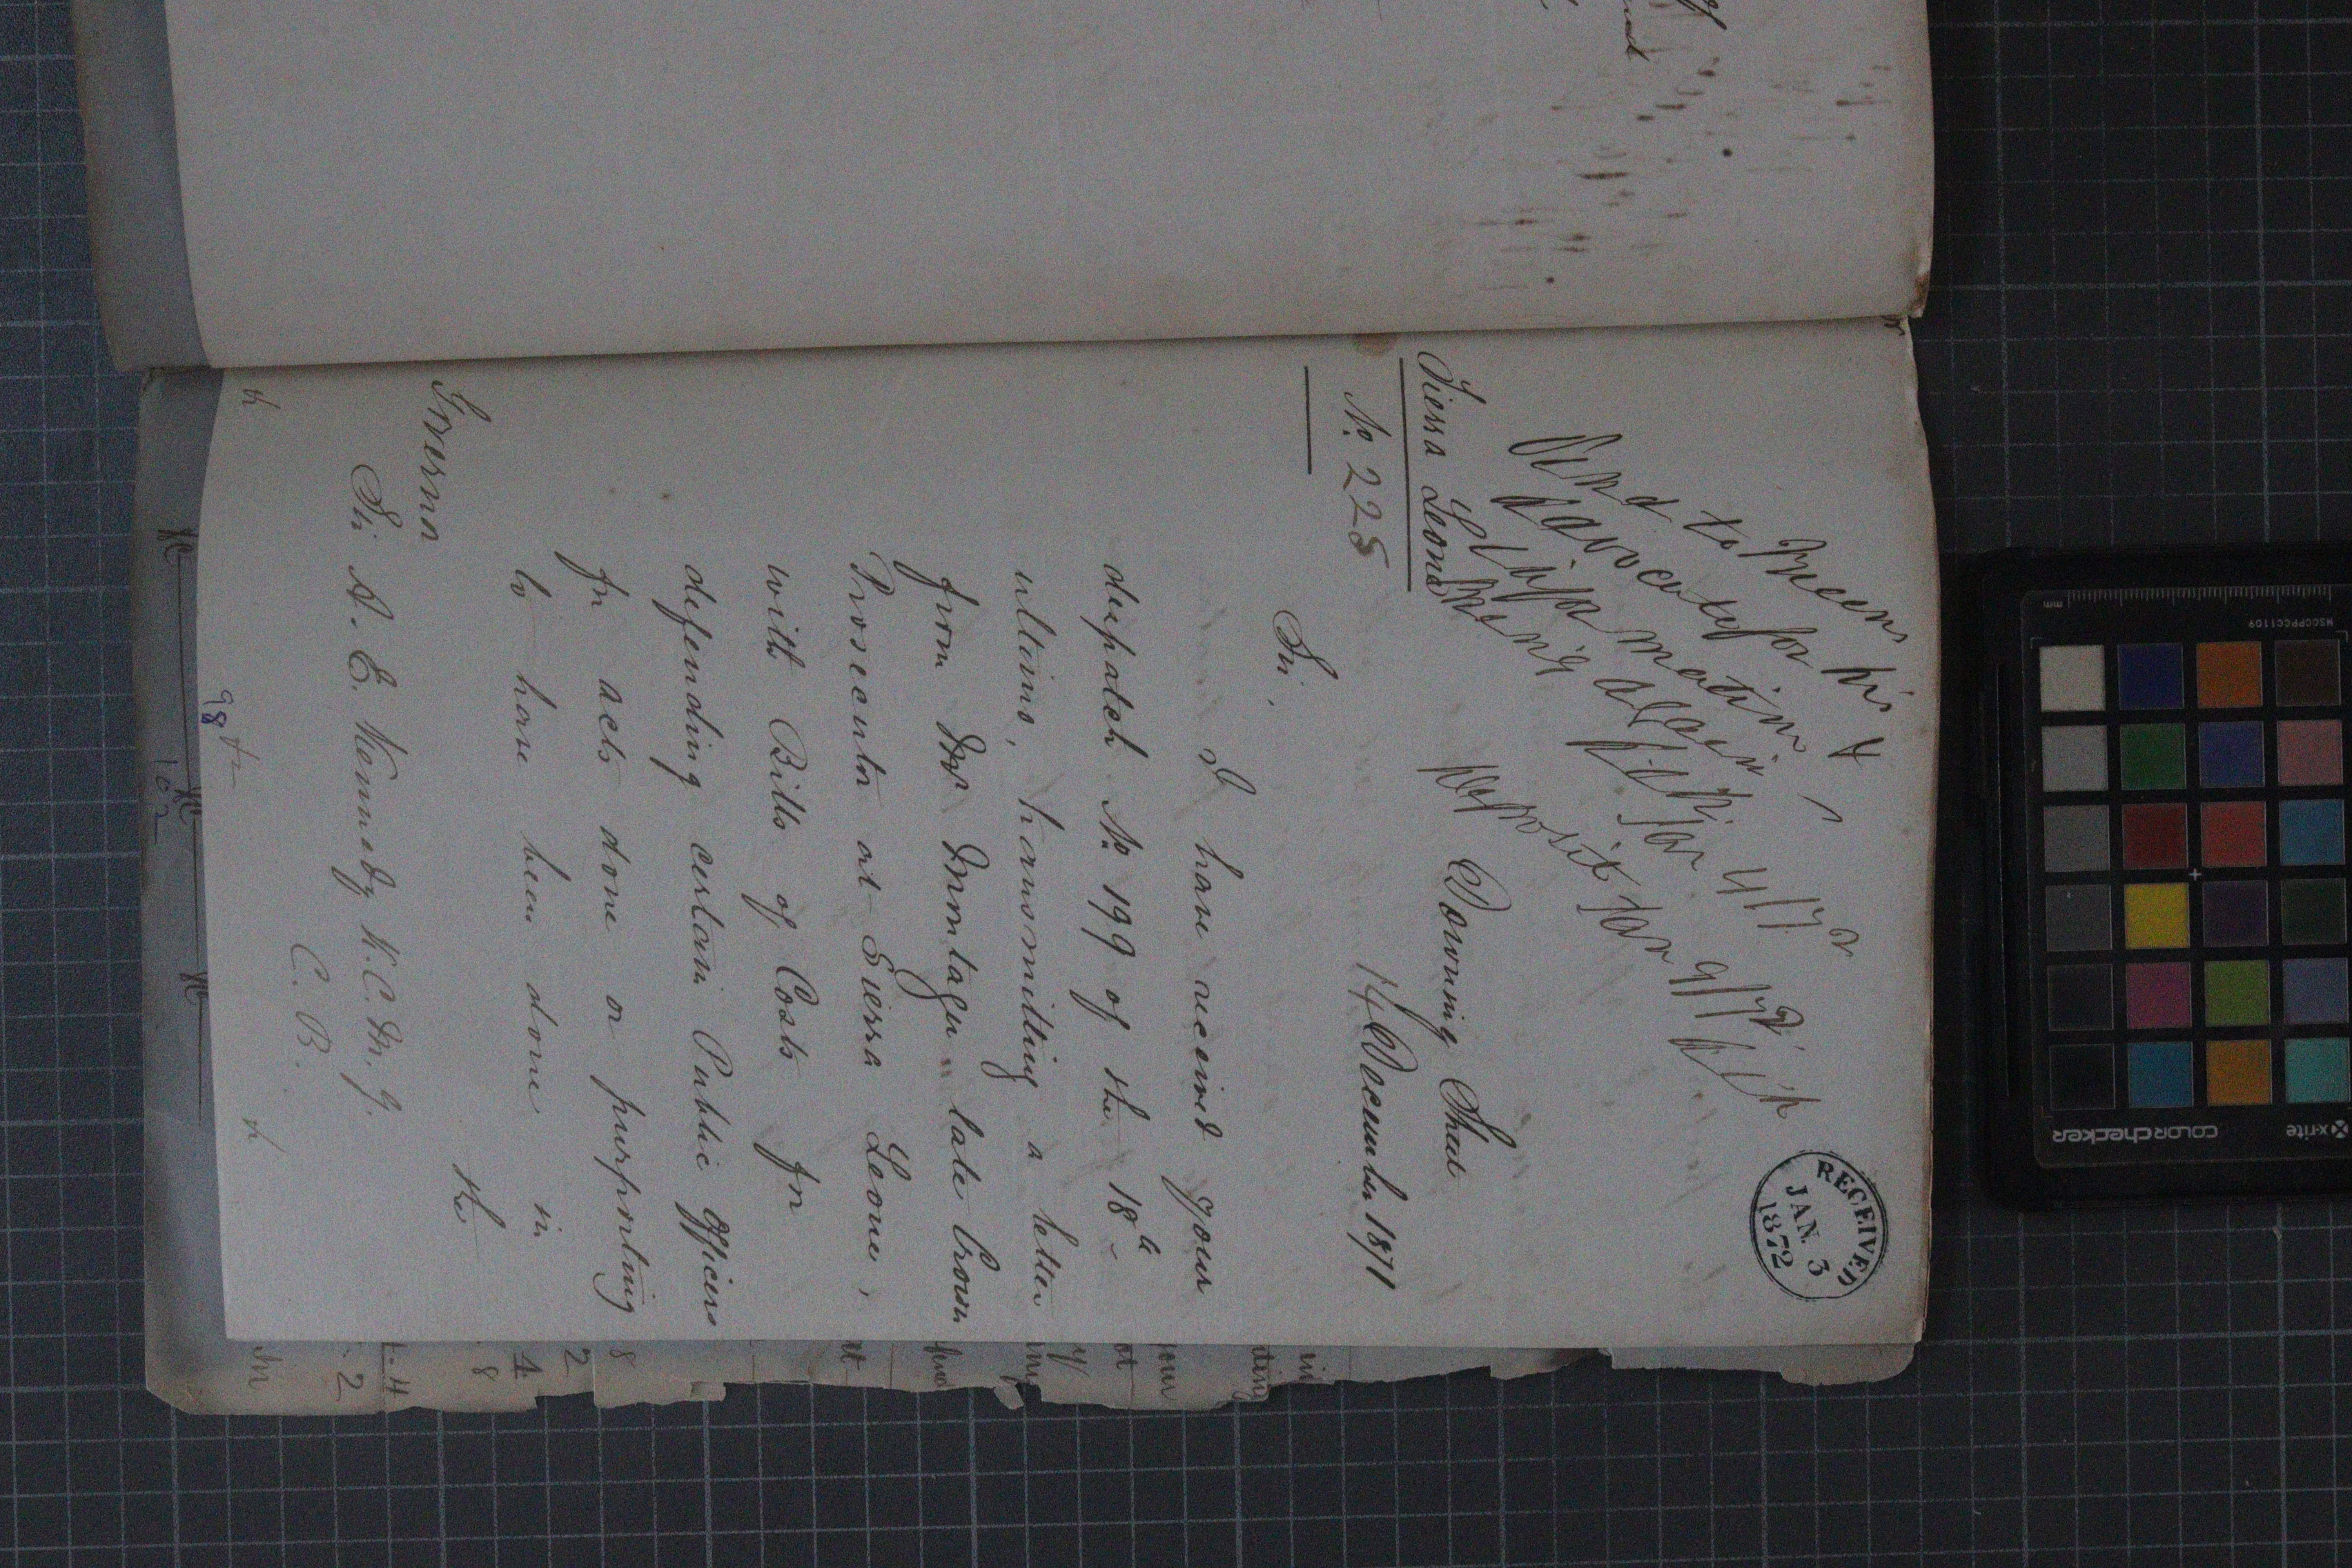 RECEIVED
JAN. 3
1872
Send to Queens
Advocate for his
information
bring again
Jan 4/72
Deposit Jan 9/72
Sierra Leone
No 225
Downing Street
14 December 1871
Sir,
I have received your
despatch No 199 of the 18th
ultimo, transmitting a letter
from Mr Montagu late Crown
Prosecutor at Sierra Leone,
with Bills of Costs for
defending certain Public Officers
for acts done or purporting
to have been done in
the
Governor
Sir A. E. Kennedy K.C.M.G.
C. B.
98
102